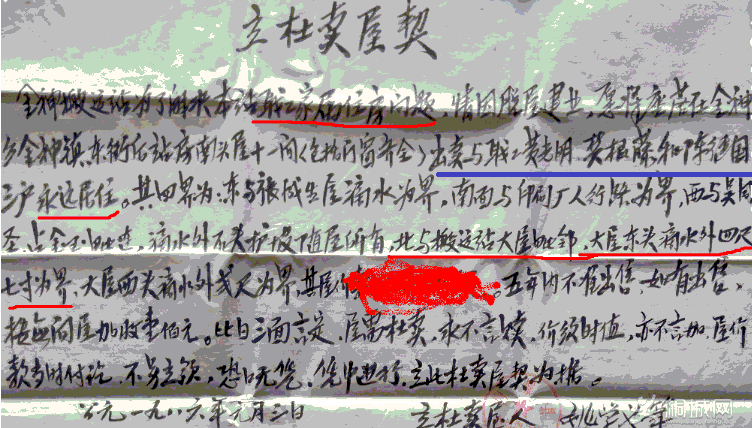 立杜卖屋契
金神搬运站为了解决本站职工家属住房问题,情因脱屋建业,愿将座落在金神
乡金神镇东街伍站房南头屋十一间(包括门窗齐全)出卖与职工黄光明、莫根藤和陈德国
三户永远居住。其四界为:东与张成生屋滴水为界,南面与印刷厂人行路为界,西与吴同
圣、占金 毗连,滴水外石头护 随屋所有,北与搬运站大屋毗邻,大屋东头滴水外四尺
七寸为界,大屋西头滴水外弍尺为界,其屋价 。五年内不准出售,如有出售,
按每间屋加收壹佰元。比日三面言定,屋 杜卖,永不言赎,价须时值,亦不言加,屋价
款当时付讫,不另立领,恐口无凭,凭中进行,立此杜卖屋契为据。
公元一九八六年元月三日 立杜卖屋人 姚
桐城网